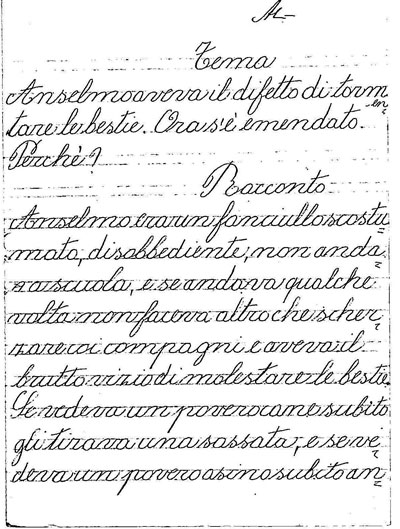 Tema
Anselmo aveva il difetto di torm
en=
tare le bestie. Ora s'è emendato.
Perchè?
Racconto
Anselmo era un fanciullo scostu=
mato, disobbediente, non anda=
va a scuola, e se andava qualche
volta non faceva altro che scher=
zare coi compagni e aveva il
brutto vizio di molestare le bestie
Se vedeva un povero cane subito
gli tirava una sassata; e se ve=
deva un povero asino subito an=